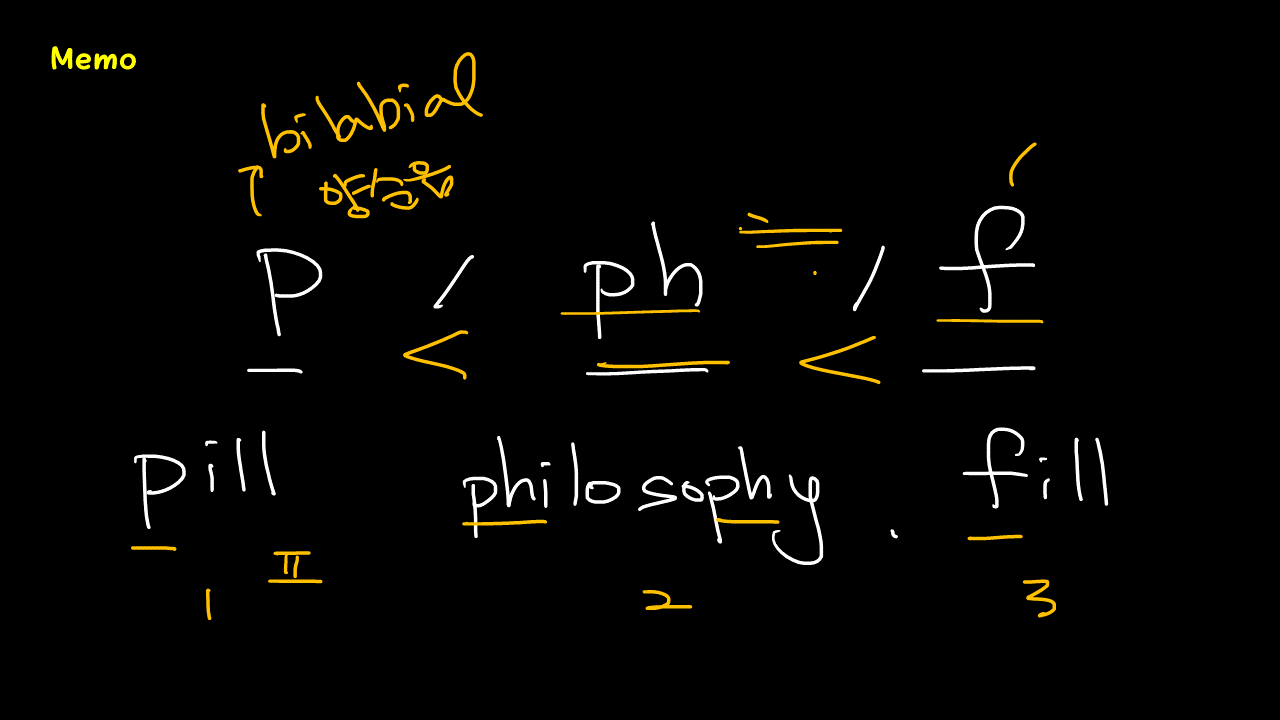 Memo
bilabial
↑ 양순음
p / ph ≒ / f
< <
pill philosophy. fill
ㅍ
1 2 3